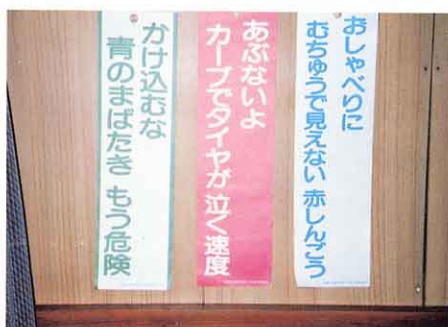 おしゃべりに
むちゅうで見えない 赤しんごう
あぶないよ
カーブでタイヤが泣く速度
かけ込むな
青のまばたき もう危険